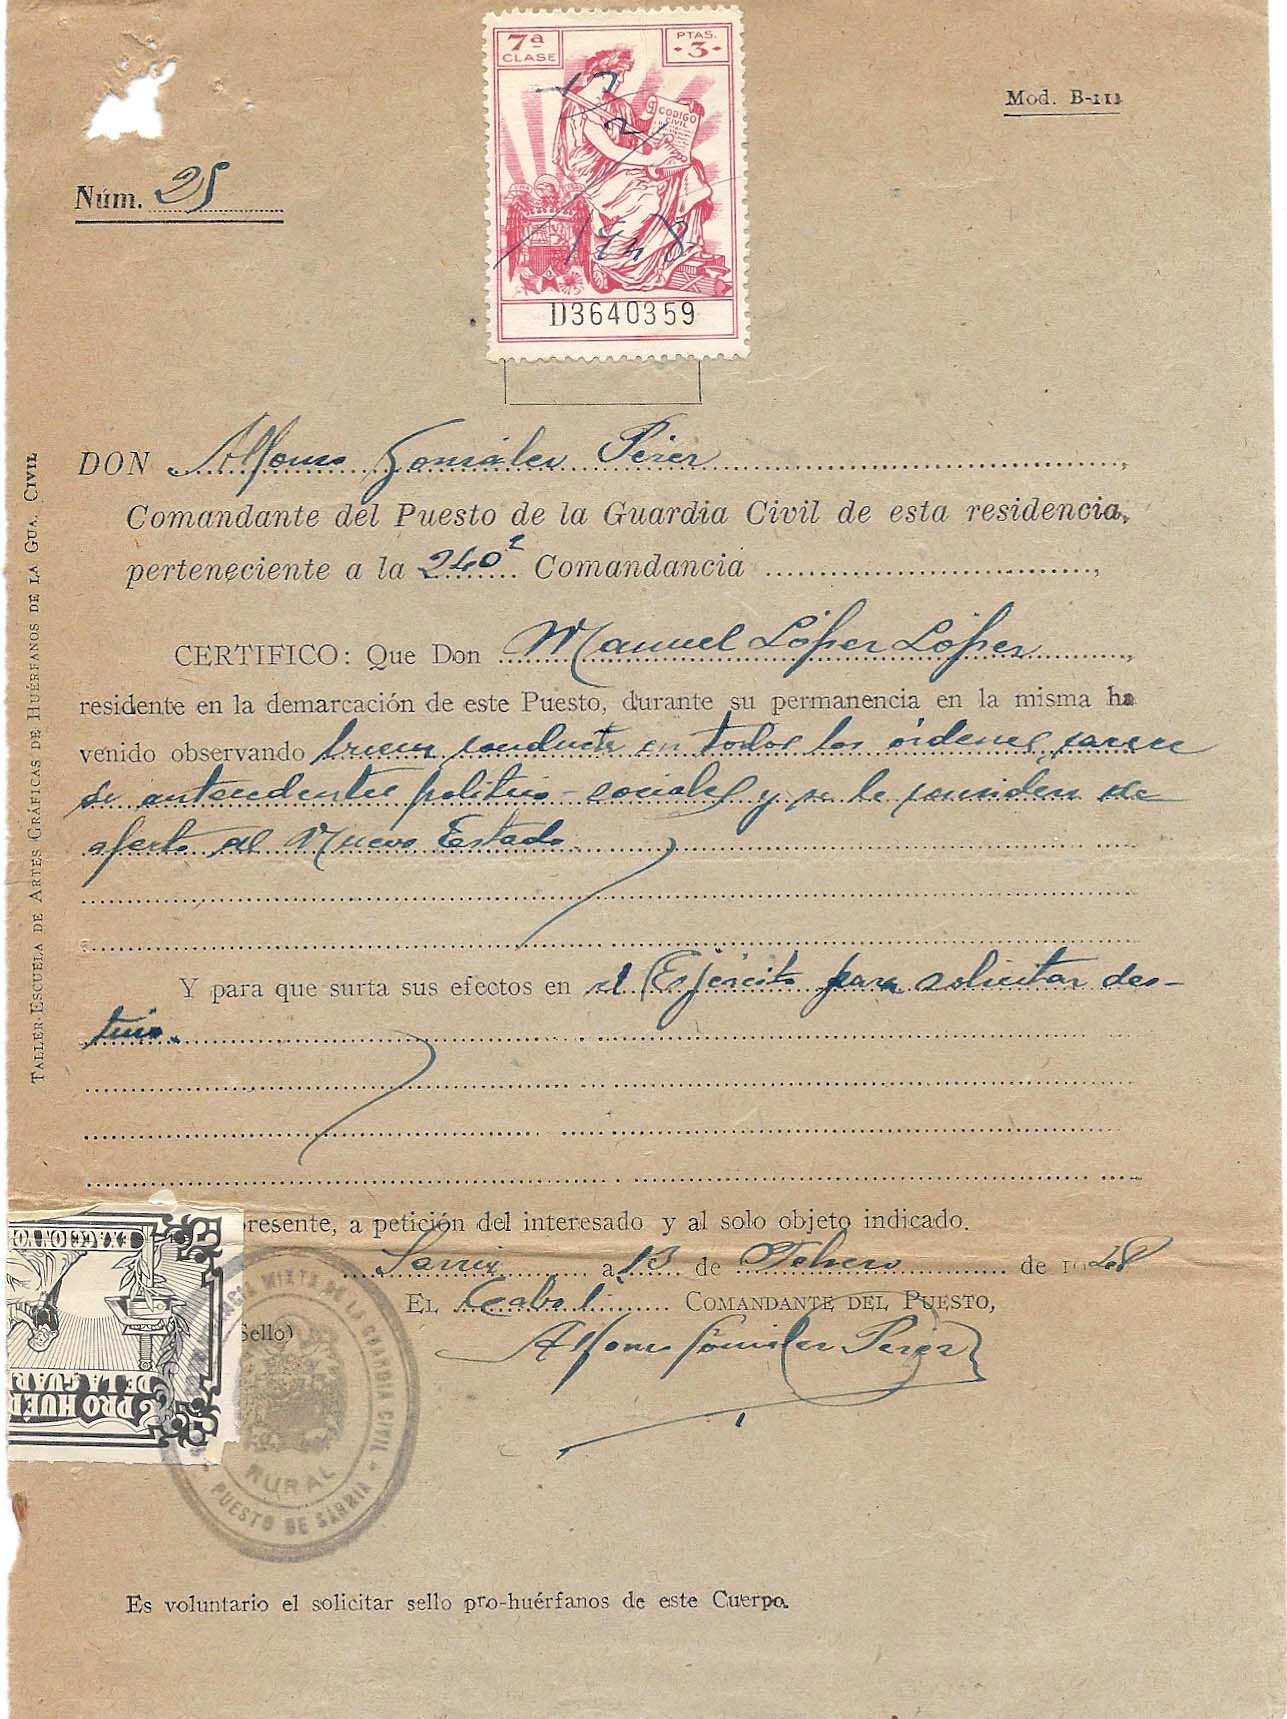 7ª
CLASE
PTAS.
3
CODIGO
CIVIL
17
2
1948
D3640359
Mod. B-111
Núm. 25
DON Alfonso González Pérez,
Comandante del Puesto de la Guardia Civil de esta residencia,
perteneciente a la 240ª Comandancia,
CERTIFICO: Que Don Manuel López López,
residente en la demarcación de este Puesto, durante su permanencia en la misma ha
venido observando buena conducta en todos los órdenes, carece
de antecedentes politico-sociales y se le considera de
afecto al Nuevo Estado.
Y para que surta sus efectos en el Ejército para solicitar des-
tino.
presente, a petición del interesado y al solo objeto indicado.
Sarria a 13 de Febrero de 1948
EL Cabo 1º COMANDANTE DEL PUESTO,
Sello)
Alfonso González Pérez
RURAL
PUESTO DE SARRIA
MIXTA DE LA GUARDIA CIVIL
PRO HUÉR
DE LA GUAR
EXACCION VO
Es voluntario el solicitar sello pro-huérfanos de este Cuerpo.
TALLER-ESCUELA DE ARTES GRÁFICAS DE HUÉRFANOS DE LA GUA. CIVIL